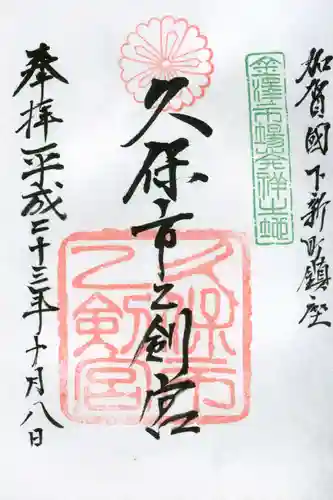 加賀國下新町鎮座
金澤市場発祥之地
久保市乙剣宮
久保市乙剣宮
奉拝 平成二十三年十月八日